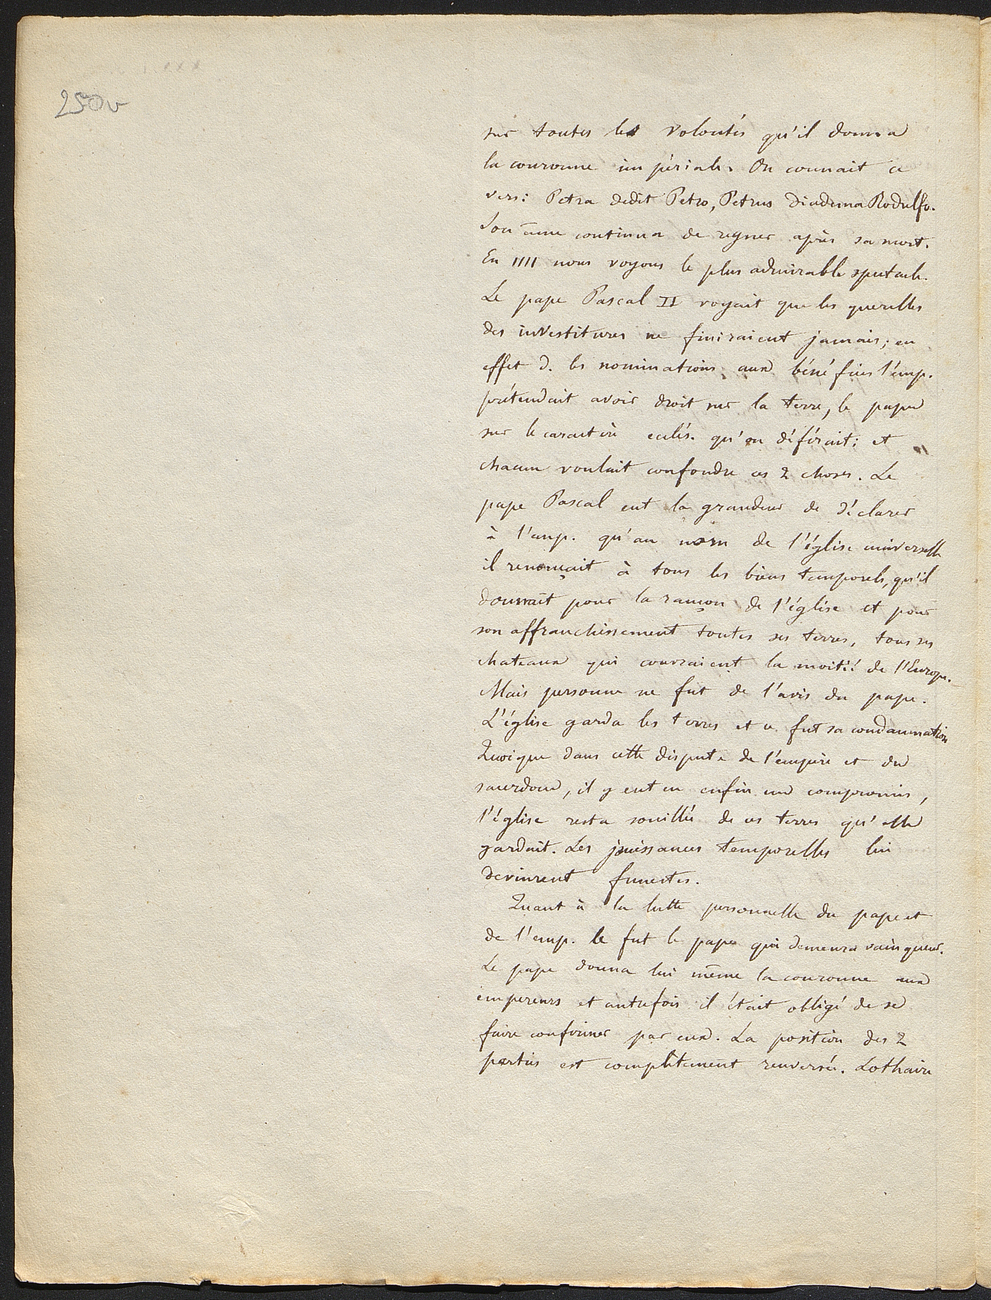 250v
sur toutes les volontés qu'il donna
la couronne impériale. On connait ce
vers: Petra dedit Petro, Petrus diadema Rodulfo.
Son âme continua de régner après sa mort.
En 1111 nous voyons le plus admirable spectacle.
Le pape Pascal II voyait que les querelles
des investitures ne finiraient jamais; en
effet d. les nominations aux bénéfices l'emp.
prétendait avoir droit sur la terre, le pape
sur le caractère eclés. qu'on déférait; et
chacun voulait confondre ces 2 choses. Le
pape Pascal eut la grandeur de déclarer
à l'emp. qu'au nom de l'église universelle
il renonçait à tous les biens temporels, qu'il
donnait pour la rançon de l'église et pour
son affranchissement toutes ses terres, tous ses
chateaux qui couvraient la moitié de l'Europe.
Mais personne ne fut de l'avis du pape.
L'église garda les terres et ce fut sa condamnation
Quoique dans cette dispute de l'empire et du
sacerdoce, il y eut en enfin un compromis,
l'église resta souillée de ces terres qu'elle
gardait. Les jouissances temporelles lui
devinrent funestes.
Quant à la lutte personnelle du pape et
de l'emp. le fut le pape qui demeura vainqueur.
Le pape donna lui même la couronne aux
empereurs et autrefois il était obligé de se
faire confirmer par eux. La position des 2
parties est complètement renversée. Lothaire